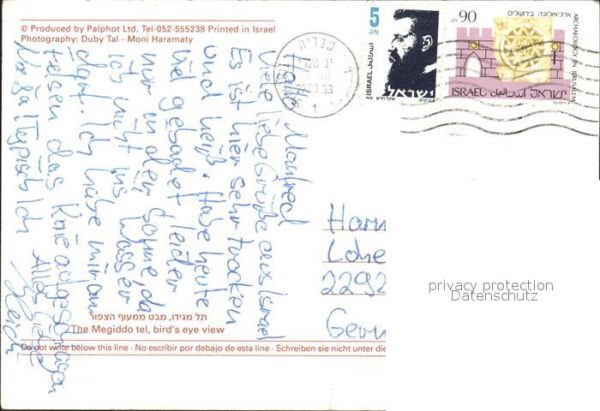 © Produced by Palphot Ltd. Tel-052-555238 Printed in Israel
Photography: Duby Tal - Moni Haramaty
5
ISRAEL
ישראל
90
ארכיאולוגיה בירושלים
ARCHAEOLOGY IN JERUSALEM
ISRAEL
ישראל
טבריה
1
Manfred
Viele liebe Grüße aus Israel
Es ist hier sehr trocken
und heiß. Habe heute
viel gebadet leider
nur in der Sonne, da
ich nicht ins Wasser
darf. Ich habe mir am
Felsen das Knie aufgeschlagen
Na ja! Typisch Ich
Alles Liebe
Heidi
2292
privacy protection
Datenschutz
תל מגידו, מבט ממעוף הצפור
The Megiddo tel, bird's eye view
Do not write below this line - No escribir por debajo de esta line - Schreiben sie nicht unter die